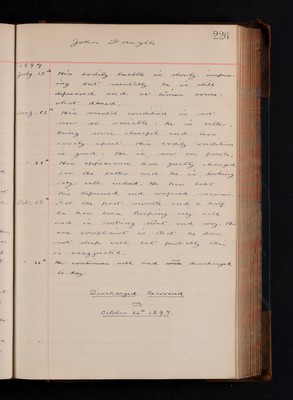 226
John Forsyth
1897
July 15th His bodily health is slowly improv-
ing but mentally he is still
depressed and at times some-
what dazed.
Aug. 15th His mental condition is
now so variable. He is better,
being more cheerful and less
easily upset. His bodily condition
is good. He is now on parole.
" 28th His appearance has greatly changed
for the better and he is looking
very well indeed. He has lost
his depressed and confused manner.
Oct. 15th For the past month and a half
he has been keeping very well
and is looking stout and rosy. His
one complaint is that he does
not sleep well but probably this
is exaggerated.
" 26th He continues well and is discharged
to-day.
Discharged Recovered
on
October 26th 1897